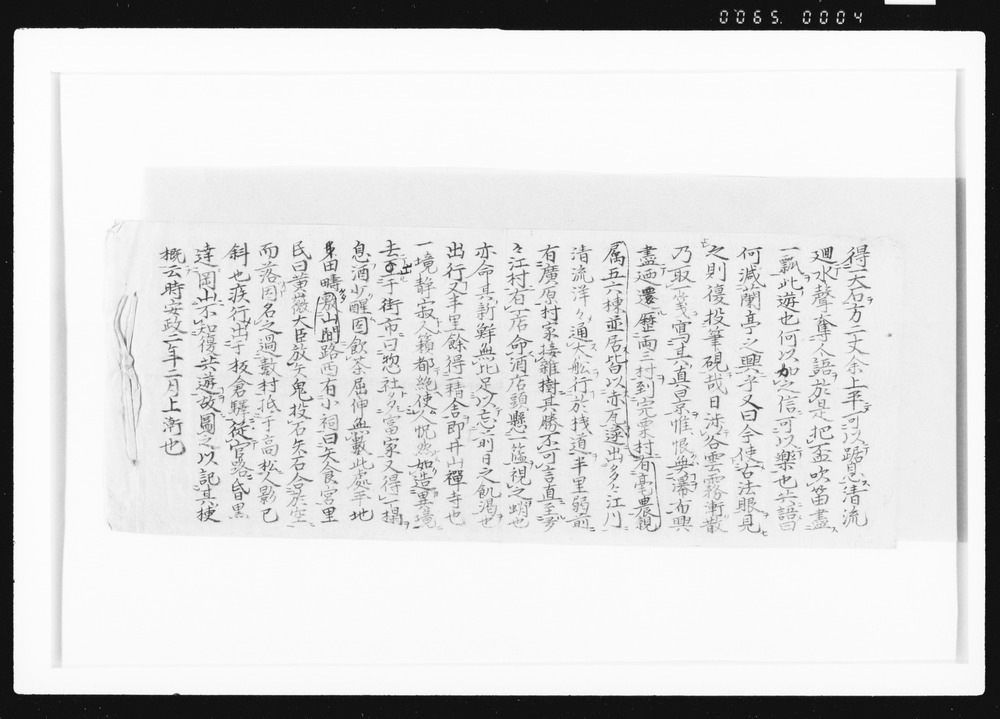 0065 0004
得一大石方二丈余上平可以踞息清流
廻水聲奪人語於是把盃吹笛盡
一瓢此遊也何以加之信可以樂也共語曰
何減蘭亭之興乎又曰令使古法眼見
之則復投筆硯哉日渉谷雲霧漸散
乃取箋寫其真景惟恨無瀑布興
盡廼還歴両三村到宍粟村有亭農親
属五六棟並居皆以赤瓦逶出多々江川
清流洋々通大舩行於棧道半里弱前
有廣原村家接雜樹其勝不可言直至
々江村有一店命酒店頭懸一籃視之蛸也
亦命其新鮮無比足以忘前日之飢渇也
出行又半里餘得一精舎即井山禪寺也
一境静寂人籟都絶使人怳然如造異境
去出于街市曰惣社多富家又得一榻
息酒少醒因飲茶屈伸無數此處平地
多田疇罽山間路両有小祠曰矢食宮里
民曰黄薇大臣放矢鬼投石矢石合於空
而落因名之過數村抵于高松人影已
斜也疾行出于板倉驛從官路昏黒
達岡山不知復共遊故圖之以記其梗
概云時安政二年二月上澣也